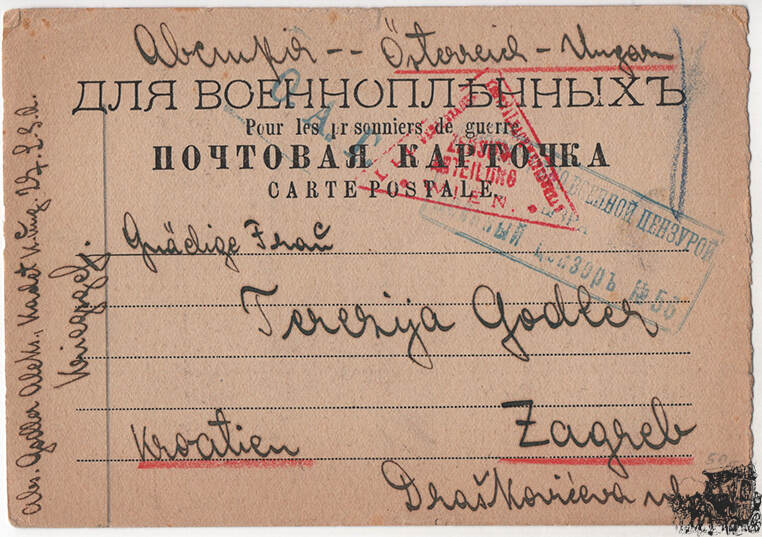 Австрія -- Österreich - Ungarn
ДЛЯ ВОЕННОПЛѢННЫХЪ
Pour les prisonniers de guerre
ПОЧТОВАЯ КАРТОЧКА
CARTE POSTALE.
ZENSUR
ABTEILUNG
WIEN.
ВОЕННОЙ ЦЕНЗУРОЙ
цензоръ № 53
Gnädige Frau
Terezija Godler
Kroatien Zagreb
Draškovićeva
Abs. Godler Aleks., Kadet
Kriegsgef.